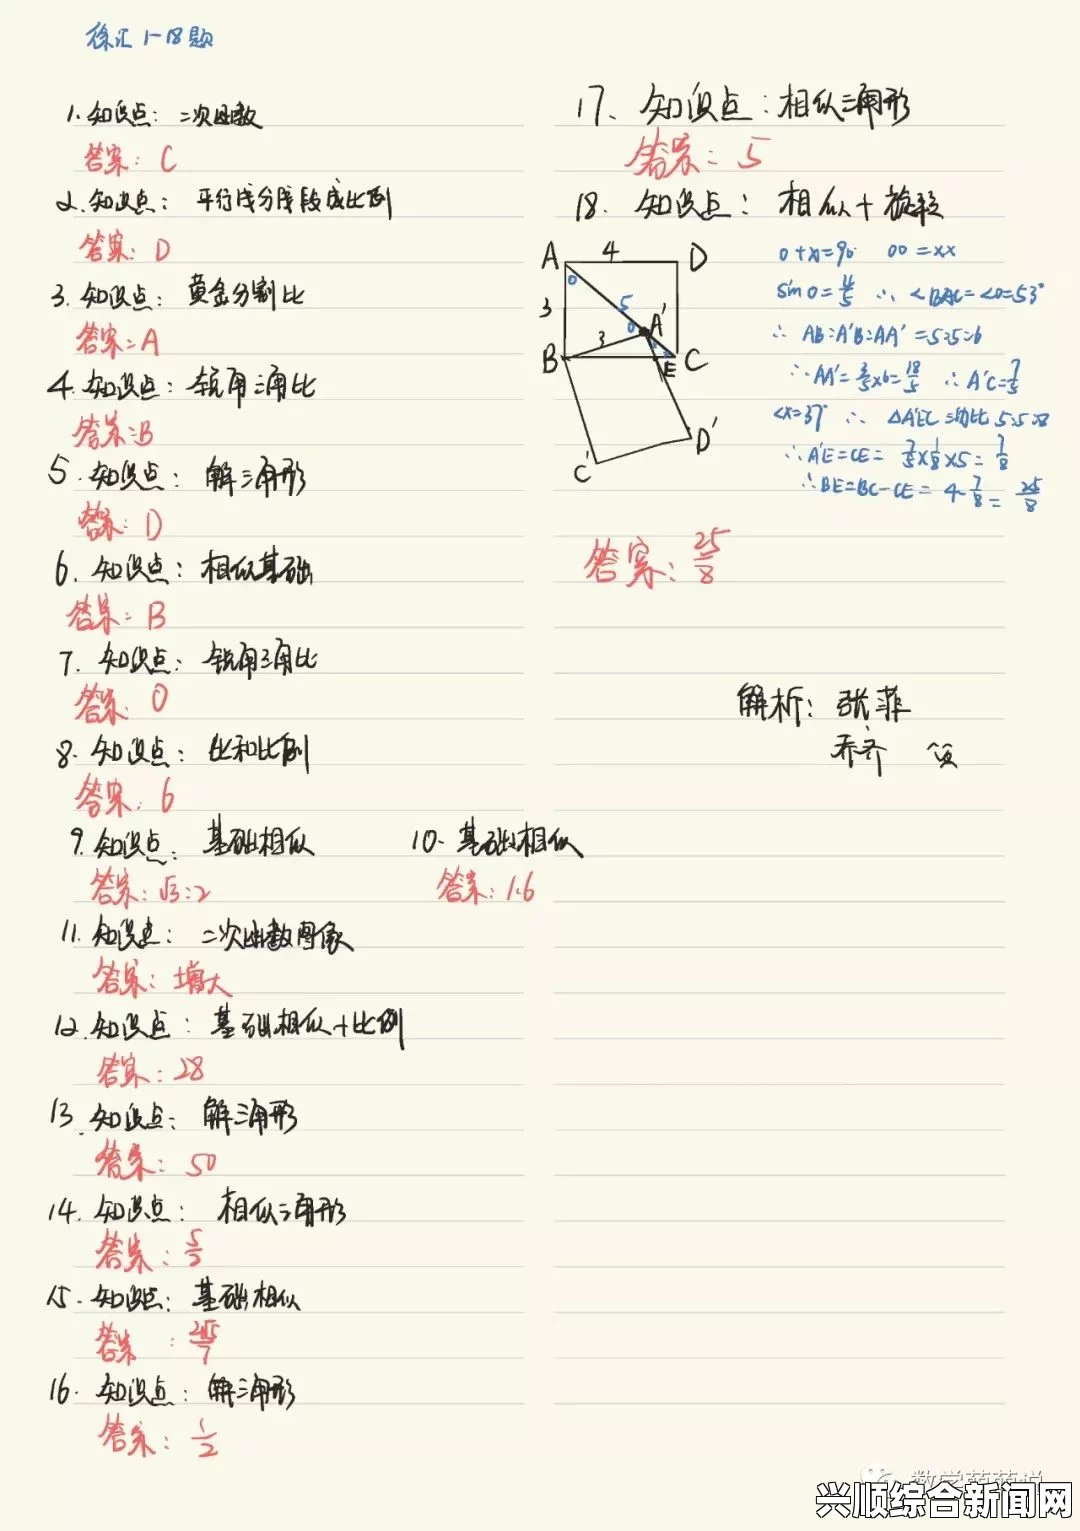 徐汇 1-18题
1. 知识点：二次函数
答案：C
2. 知识点：平行线分线段成比例
答案：D
3. 知识点：黄金分割比
答案：A
4. 知识点：锐角三角比
答案：B
5. 知识点：解三角形
答案：D
6. 知识点：相似基础
答案：B
7. 知识点：锐角三角比
答案：0
8. 知识点：比和比例
答案：6
9. 知识点：基础相似
答案：√3:2
10. 基础相似
答案：1.6
11. 知识点：二次函数图像
答案：增大
12. 知识点：基础相似+比例
答案：28
13. 知识点：解三角形
答案：50
14. 知识点：相似三角形
答案：
15. 知识点：基础相似
答案：
16. 知识点：解三角形
答案：1/2
17、知识点：相似三角形
答案：5
18. 知识点：相似+旋转
A 4 D
3 5 A'
B 3 E C
C' D'
0+x=90 00=xx
sin0=4/5 ∴ ∠BAC=∠0=53°
∴ AB:A'B:AA'=5:5:6
∴ AA'=3/5×6=18/5 ∴ A'C=7/5
∠x=37° ∴ △A'EC 三边比 5:5:8
∴ A'E=CE=7/5×1/8×5=7/8
∴ BE=BC-CE=4-7/8=25/8
答案：25/8
解析：张菲
乔齐
数学莫莫说
兴顺综合新闻网